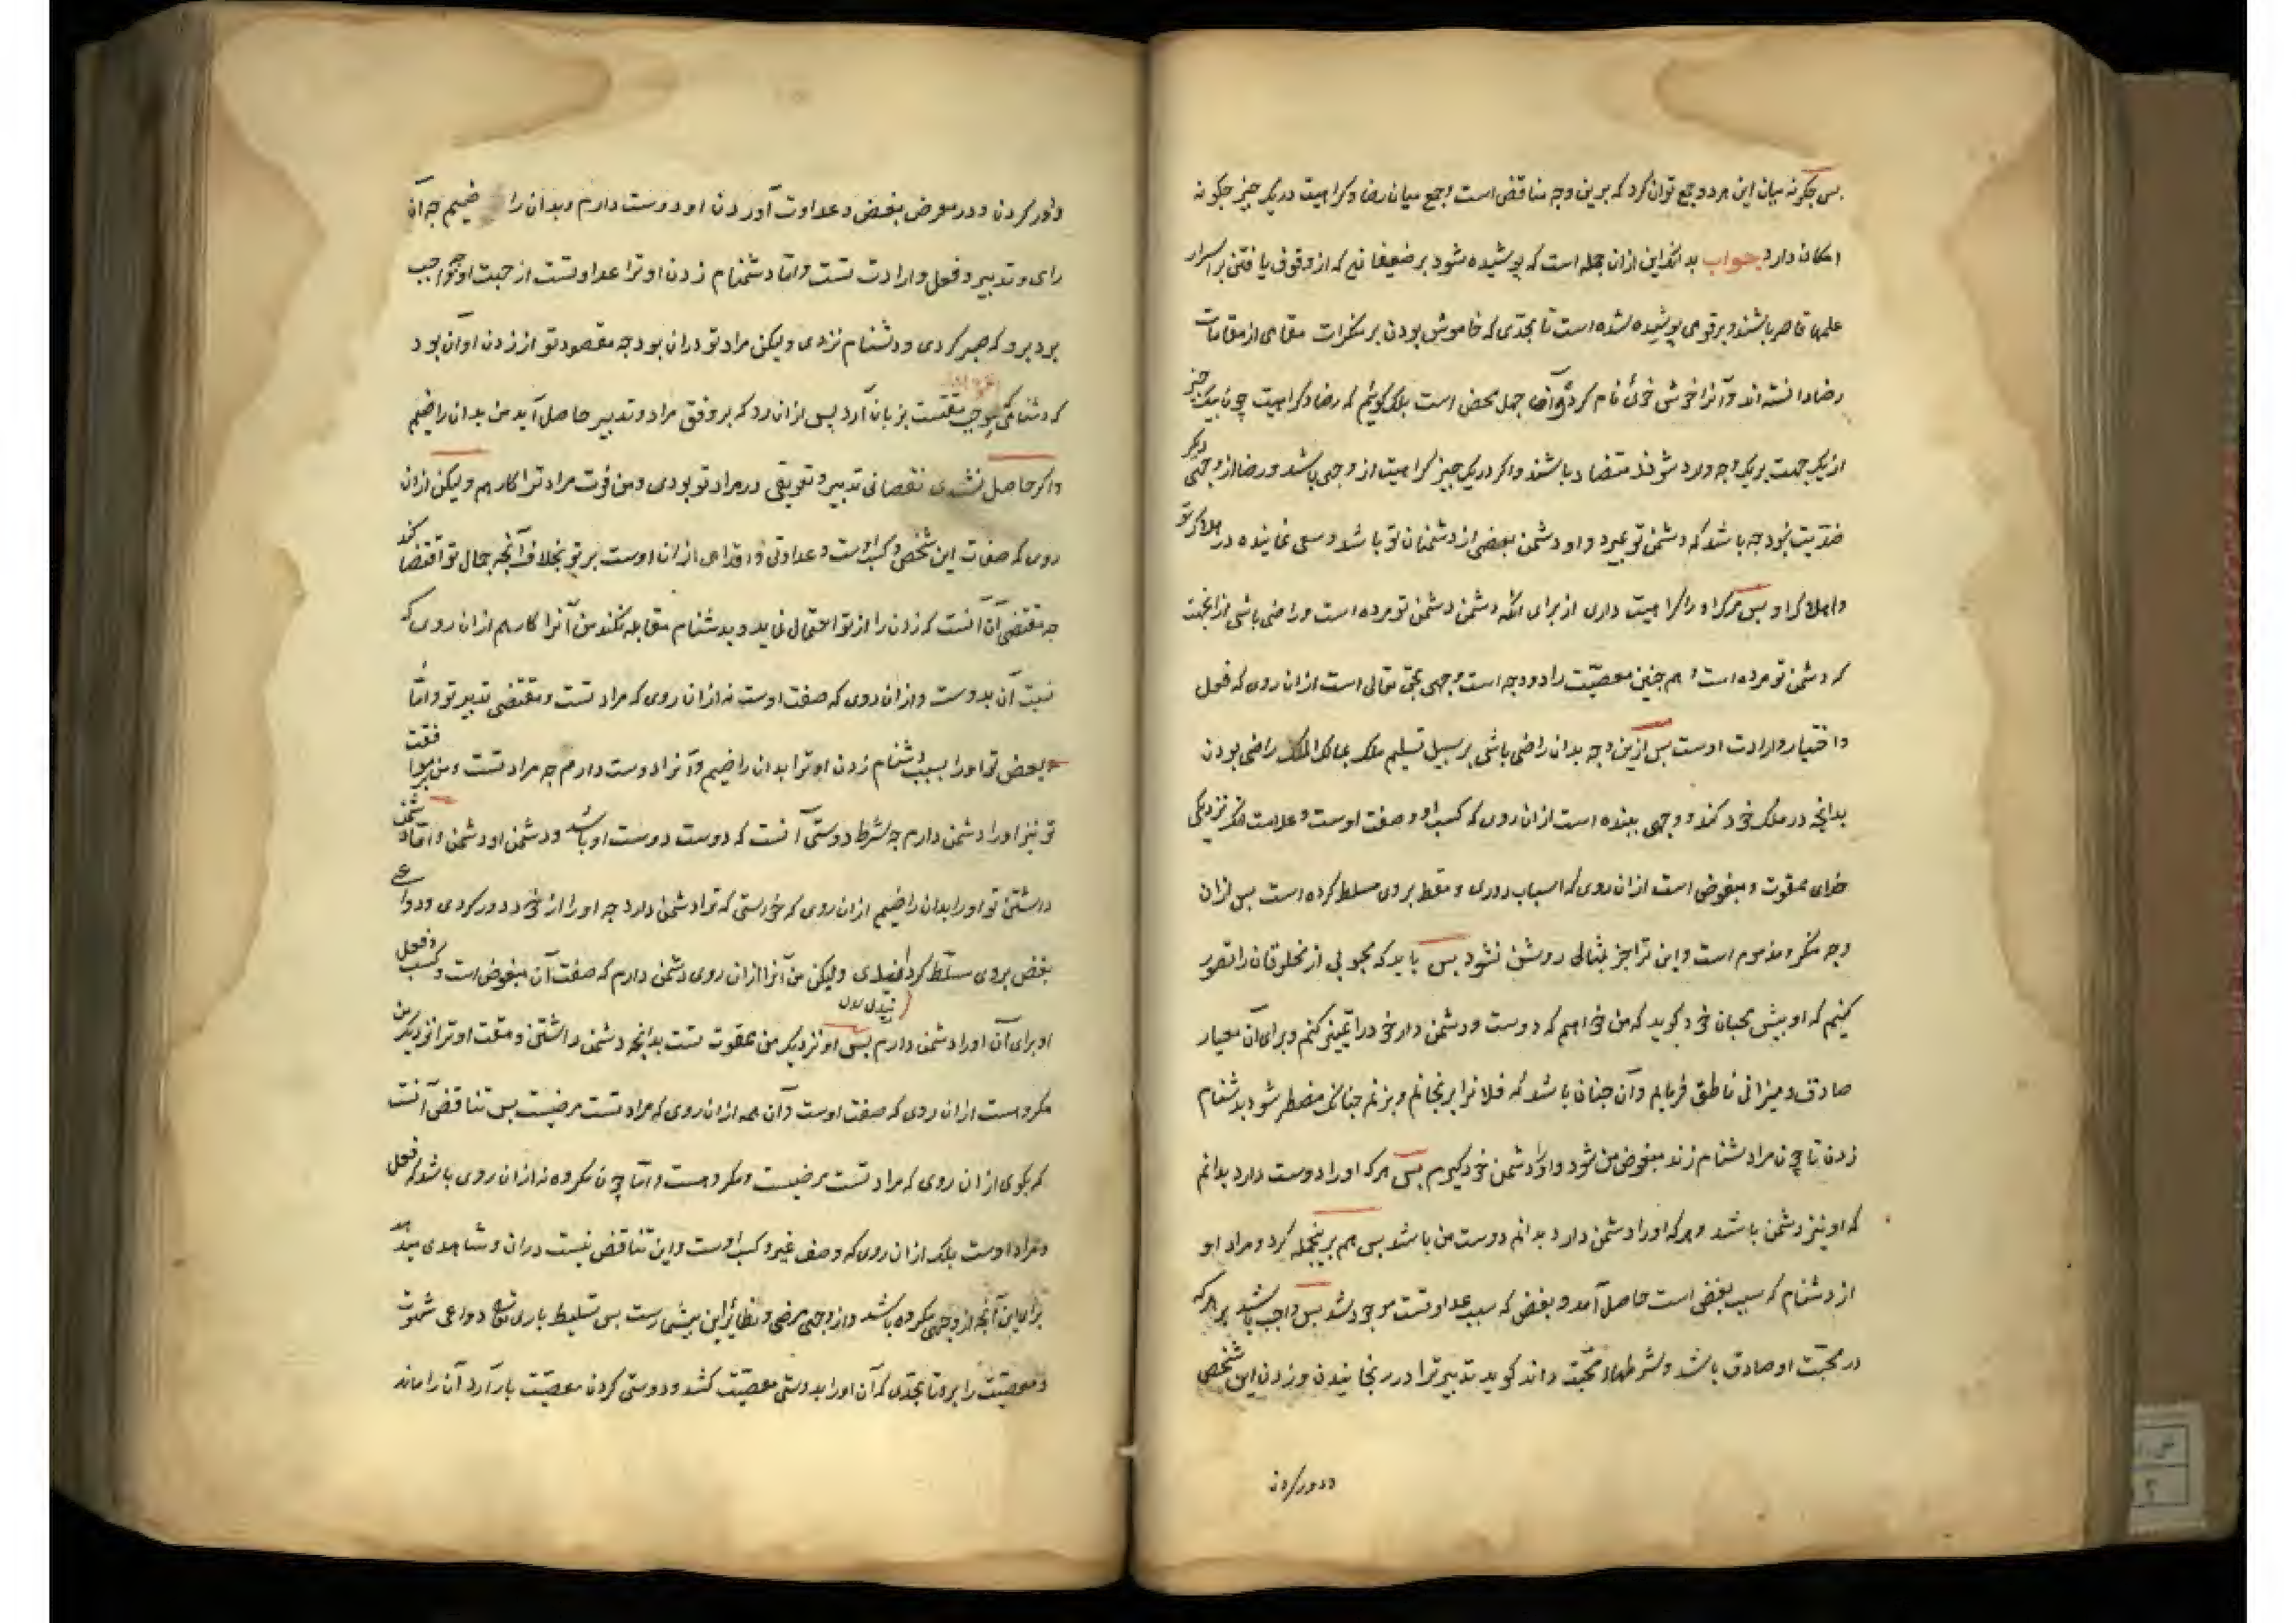 پس چکونه میان این هر دو جمع توان کرد که برین وجه متناقض است و جمع میان رضا و کراهیت در یک چیز چکونه
امکان دارد جواب بدانکه این ازان جمله است که پوشیده شود بر ضعیفانی که از وقوف یافتن بر اسرار
علمها قاصر باشند و بر قومی پوشیده شده است تا بحدّی که خاموش بودن بر منکرات مقامی از مقامات
رضا دانسته اند و آنرا خوش خوئی نام کرده و آن جهل محض است بلکه کوئیم که رضا و کراهیت چون بیک چیز
از یک جهت بر یک وجه وارد شوند متضاد باشند و اکر در یک چیز کراهیت از وجهی باشد و رضا از وجهی دیکر
ضدّیت نبود چه باشد که دشمن تو بمیرد و او دشمن بعضی از دشمنان تو باشد و سعی نماینده در هلاک تو
و اهلاک او پس مرک او را کراهیت داری از برای انکه دشمن دشمن تو مرده است و راضی باشی از انجهت
که دشمن تو مرده است و هم چنین معصیّت را دو وجه است وجهی بحق تعالی است ازان روی که فعل
و اختیار و ارادت اوست پس ازین وجه بدان راضی باشی بر سبیل تسلیم ملک بمالک الملک و راضی بودن
بدانچه در ملک خود کند و وجهی ببنده است ازان روی که کسب او و صفت اوست و علامت آنکه نزدیک
خدای ممقوت و مبغوض است ازان روی که اسباب دوری و مقت بر وی مسلط کرده است پس ازان
وجه منکر و مذموم است و این ترا جز بمثالی روشن نشود پس باید که محبوبی از مخلوقان را تصور
کنیم که او پیش محبان خود کوید که من خواهم که دوست و دشمن دار خود را تمییز کنم و برای آن معیار
صادق و میزانی ناطق فرمایم و آن چنان باشد که فلانرا برنجانم و بزنم چنانکه مضطر شود بدشنام
زدن تا چون مرا دشنام زند مبغوض من شود و او را دشمن خود کیرم پس هر که او را دوست دارد بدانم
که او نیز دشمن باشد و هر که او را دشمن دارد بدانم دوست من باشد پس هم برینجمله کرد و مراد او
از دشنام که سبب بغض است حاصل آمد و بغض که سبب عداوتست موجود شد پس واجب باشد بر هر که
در محبّت او صادق باشد و شرطهاء محبّت داند کوید تدبیر ترا در رنجانیدن و زدن این شخص
و دور کردن
و دور کردن و در معرض بغض و عداوت آوردن او دوست دارم و بدان راضیم چه آن
رای و تدبیر و فعل و ارادت تست و امّا دشنام زدن او ترا عداوتست از جهت او چه واجب
بود برو که صبر کردی و دشنام نزدی ولیکن مراد تو دران بود چه مقصود تو از زدن او آن بود
که دشنامی که موجب مقتست بزبان آرد پس ازان رو که بر وفق مراد و تدبیر حاصل آید من بدان راضیم
و اکر حاصل نشدی نقصانی تدبیر و تعویقی در مراد تو بودی و من فوت مراد ترا کارهم ولیکن ازان
روی که صفات این شخص و کسب اوست و عداوتی و اقدامی ازان اوست بر تو بخلاف آنچه جمال تو اقتضا کند
چه مقتضی آن آنست که زدن را از تو احتمال نماید و بدشنام مقابله نکند من آنرا کارهم ازان روی که
نسبت آن بدوست و ازان روی که صفت اوست نه ازان روی که مراد تست و مقتضی تدبیر تو و امّا
بعض تو او را بسبب دشنام زدن او ترا بدان راضیم و آنرا دوست دارم چه مراد تست و من بر موافقت
تو نیز او را دشمن دارم چه شرط دوستی آنست که دوست دوست او باشد و دشمن او دشمن و امّا دشمن
داشتن تو او را بدان راضیم ازان روی که خواستی که ترا دشمن دارد چه او را از خود دور کردی و دواعی
بغض بر وی مسلّط کردانیدی ولیکن من آنرا ازان روی دشمن دارم که صفت آن مبغوض است و کسب و فعل
او برای آن او را دشمن دارم پس او نزدیک من ممقوت تست بدانچه دشمن داشتن و مقت او ترا نزدیک من
مکروهست ازان روی که صفت اوست و آن همه ازان روی که مراد تست مرضیست پس تناقض آنست
که بکوی ازان روی که مراد تست مرضیست و مکروهست و امّا چون مکروه نه ازان روی باشد که فعل
و مراد اوست بلکه ازان روی که وصف غیر و کسب اوست و این تناقض نیست دران و شاهدی میدهد
برای این آنچه از وجهی مکروه باشد و از وجهی مرضی و نظائر این بیشمارست پس تسلیط باری تع دواعی شهوت
و معصیّت را برو تا بحدّی که آن او را بدوستی معصیّت کشد و دوستی کردن معصیّت بار آرد آن را ماند